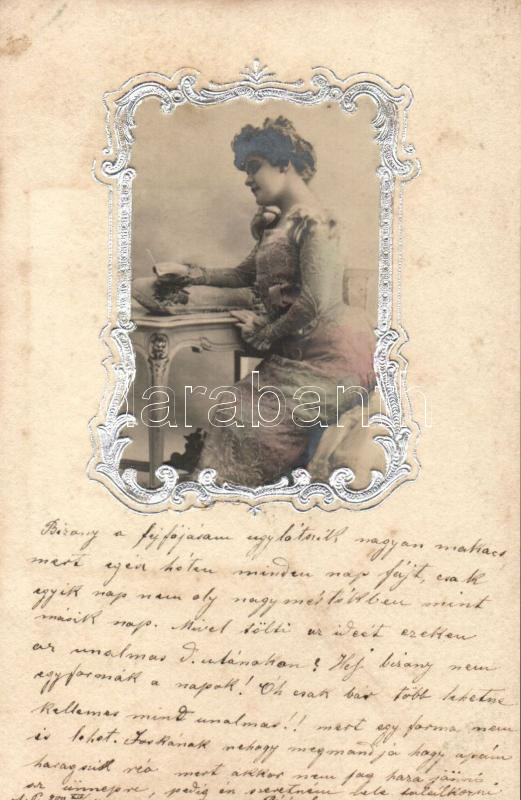 Darabanth
Bizony a fejfájásom ugylátszik nagyon makacs
mert egész héten minden nap fájt, csak
egyik nap nem oly nagymértékben mint
másik nap. Mivel tölti az idejét ezeken
az unalmas d. utánokon? Hej bizony nem
egyformák a napok! Oh csak bár több lehetne
kellemes mind unalmas!! mert egy forma nem
is lehet. Juskának nehogy megmondja hogy apám
haragszik reá mert akkor nem fog haza jönni
az ünnepre, pedig én szeretnem vele